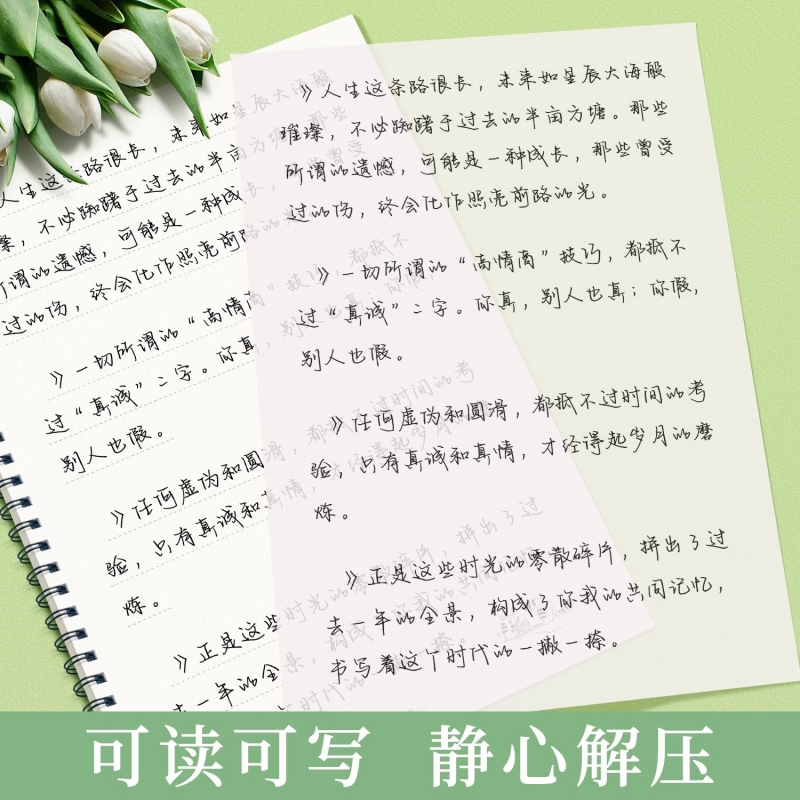 》人生这条路很长，未来如星辰大海般
璀璨，不必踟蹰于过去的半亩方塘。那些
所谓的遗憾，可能是一种成长，那些曾受
过的伤，终会化作照亮前路的光。
》一切所谓的“高情商”技巧，都抵不
过“真诚”二字。你真，别人也真；你假，
别人也假。
》任何虚伪和圆滑，都抵不过时间的考
验，只有真诚和真情，才经得起岁月的磨
炼。
》正是这些时光的零散碎片，拼出了过
去一年的全景，构成了你我的共同记忆，
书写着这个时代的一撇一捺。
人生这条路很长，未来如星辰大海般
璨，不必踟蹰于过去的半亩
所谓的遗憾，可能是一种成
过的伤，终会化作照亮前路的
》一切所谓的“高情商”技巧，都抵不
过“真诚”二字。你真，别人
别人也假。
》任何虚伪和圆滑，都抵不过时间的考
验，只有真诚和真情，才经得起岁月
炼。
》正是这些时光的零散碎片，拼出了过
去一年的全景，构成了你我的共同记忆
时代的一撇一捺。
可读可写 静心解压